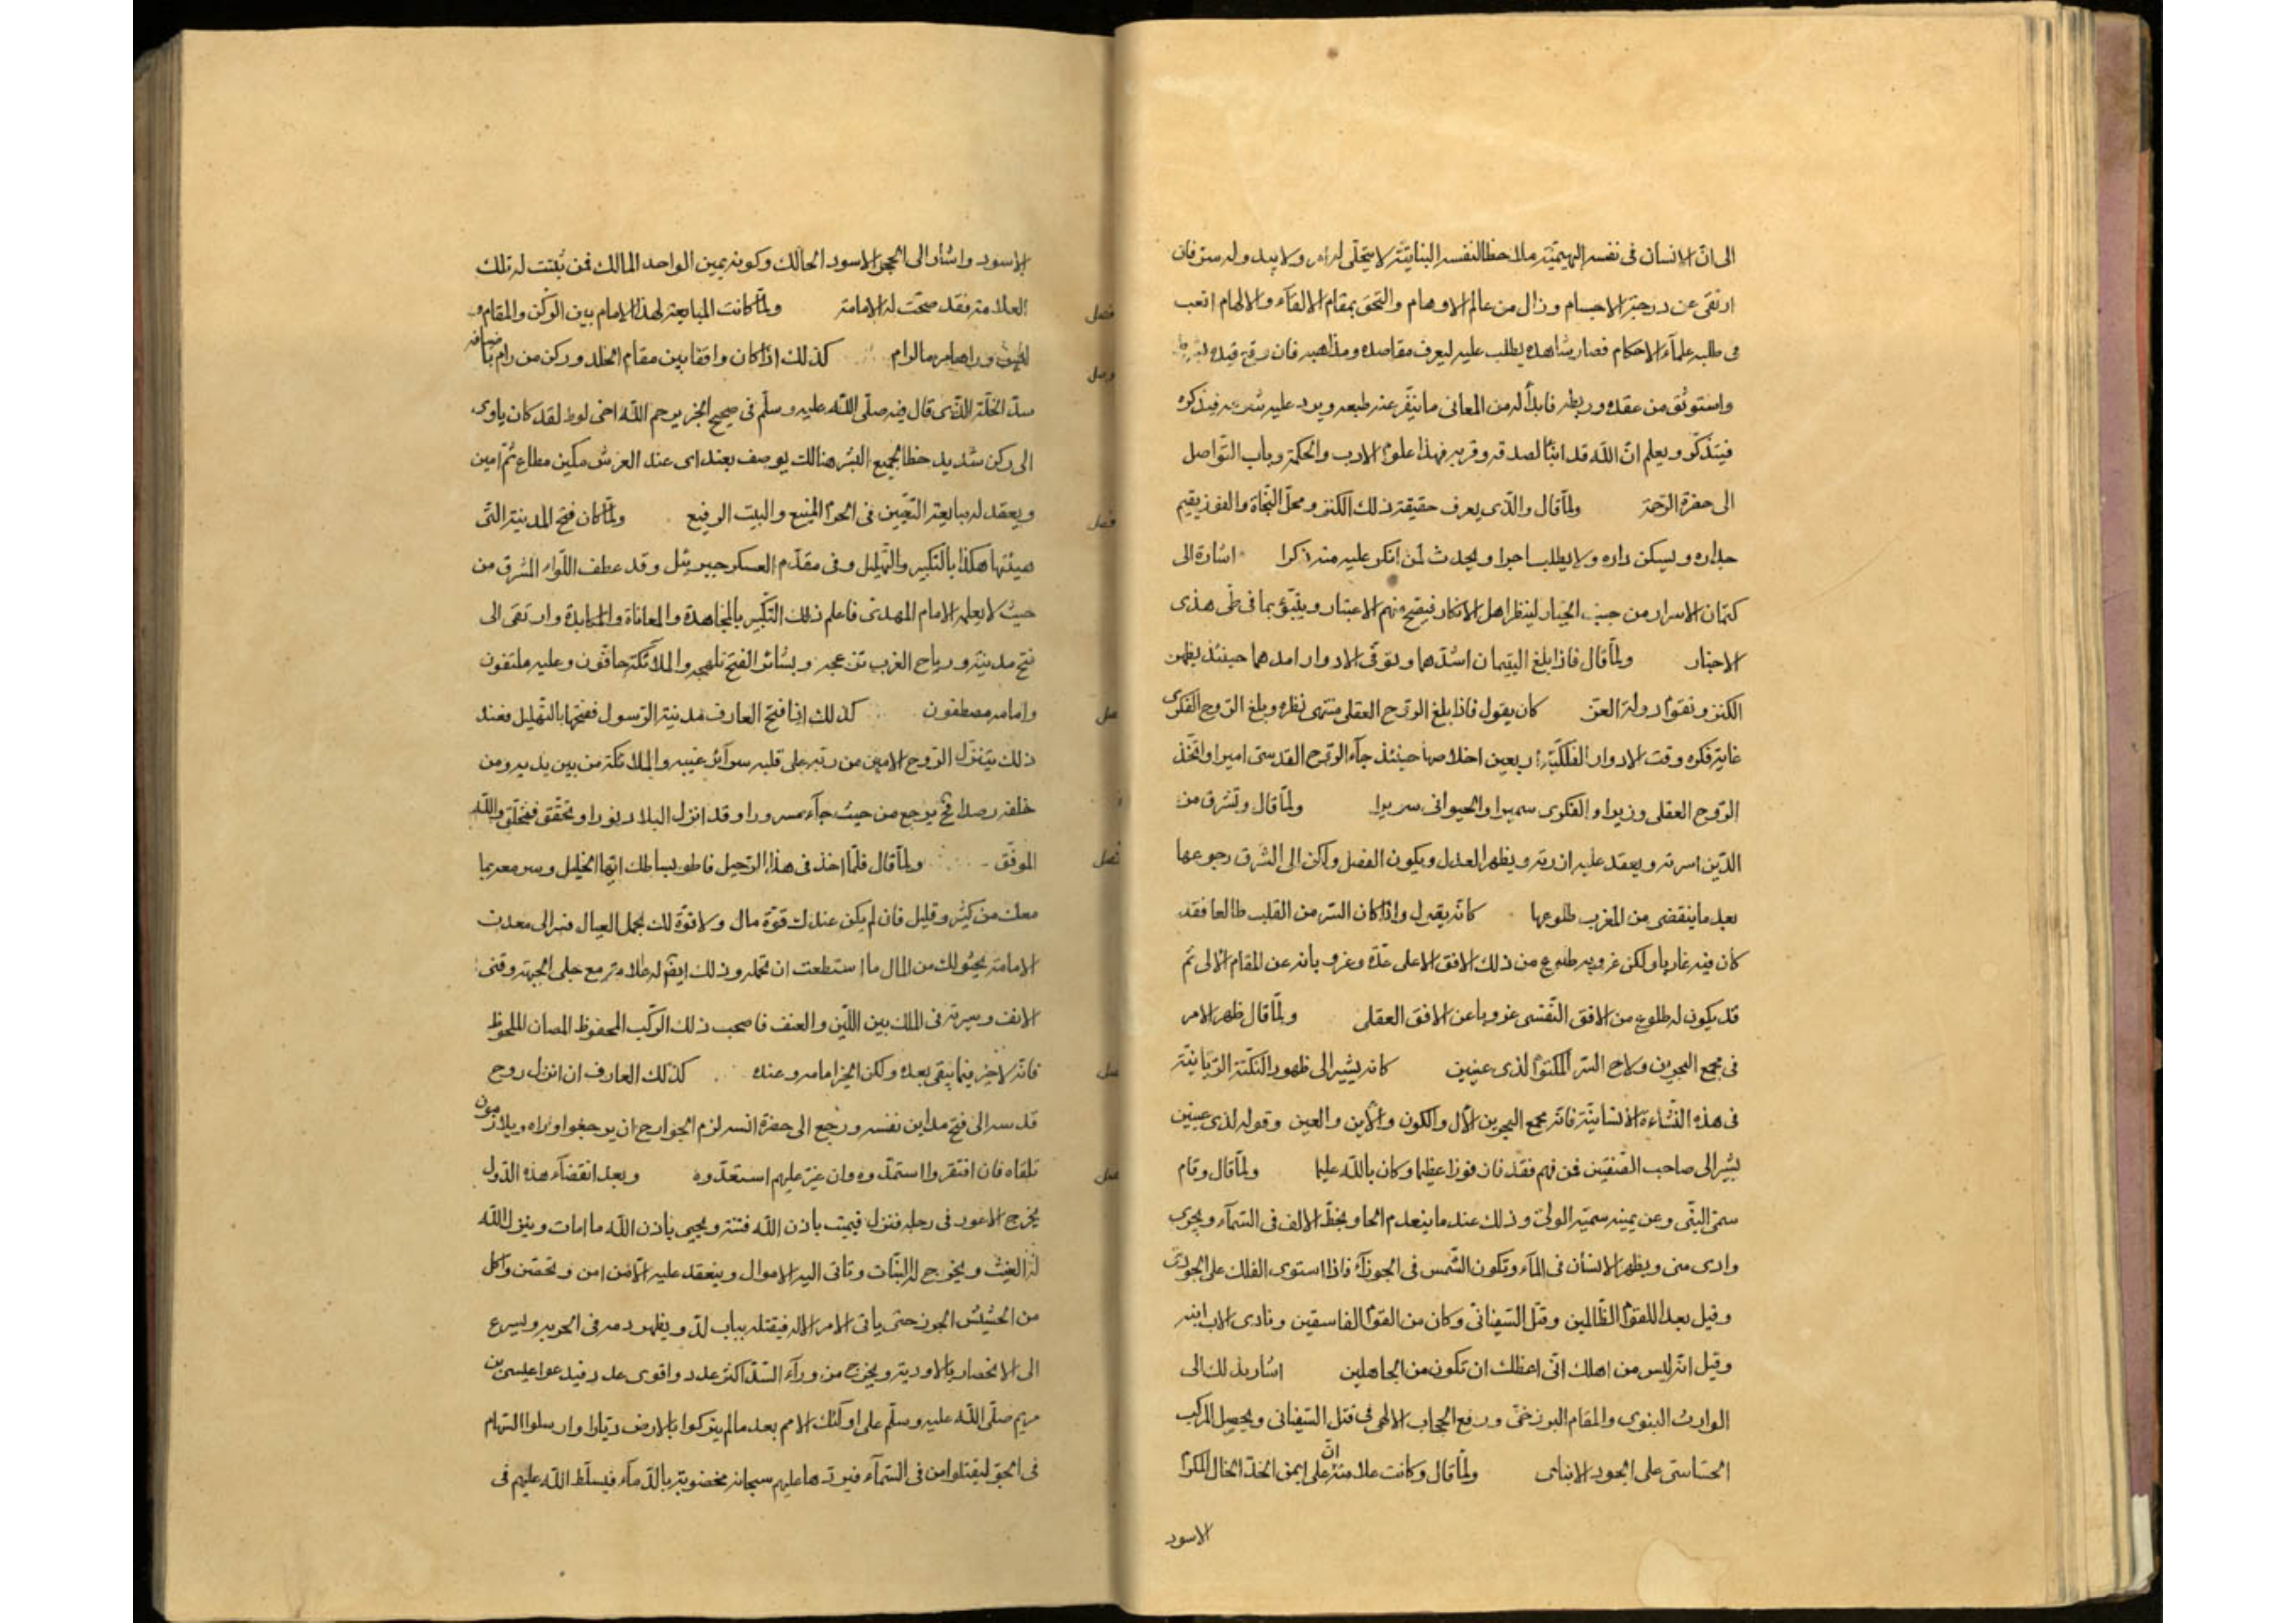 الى ان الانسان فى نفسه البهيميّة ملاحظا لنفسه النباتيّة لا يتجلّى له أمر ولا يبدو له سرّ فان
ارتقى عن درجة الاجسام وزال من عالم الاوهام والتحق بمقام الالقآء والالهام اتعب
فى طلبه علمآء الاحكام فصار شاهده يطلب عليه ليعرف مقاصده ومذاهبه فان
واستوثق من عقده وربطه فابدأ له من المعانى ما ينفّر عنه طبعه ويرد عليه شرعه فيذكره
فيتذكّر ويعلم انّ اللّه قد انبأ لصدقه وقربه فهذا علوم الادب والحكمة وباب التّواصل
الى حضرة الرّحمة ولمّا قال والّذى يعرف حقيقة ذلك الكنز ومحلّ النّجاة والفوز يقيم
جداره ويسكن داره ولا يطلب اجرا ويحدث لمن انكر عليه منه ذكرا اشارة الى
كتمان الاسرار من جنب الجبار لينظر اهل الانكار فيصحّ منهم الاعتبار وينبّؤ بما فى طى هذى
الاخبار ولمّا قال فاذا بلغ اليتيمان اشدّهما وتوفّى الادوار امدهما حينئذ يظهر
الكنز وتقوم دولة العزّ كان يقول فاذا بلغ الرّوح العقلى منتهى نظره وبلغ الرّوح الفكرى
غاية فكره وقت الادوار الفلكيّة اربعين اخلاصها حينئذ جآء الرّوح القدسى اميرا واتّخذ
الرّوح العقلى وزيرا والفكرى سميرا والحيوانى سريرا ولمّا قال وتشرق من
الدّين اسرته ويعقد عليه ازرته ويظهر العدل ويكون الفضل ولكن الى الشّرق رجوعها
بعد ما ينقضى من المغرب طلوعها كانّه يقول واذا كان السّر من القلب طالعا فقد
كان فيه غاربا ولكن غروبه طلوع من ذلك الافق الاعلى عدّه وغروبا له عن المقام الالى ثم
قد يكون له طلوع من الافق النّفسى غروبا عن الافق العقلى ولمّا قال ظهر الامر
فى مجمع البحرين ولاح السّر المكتوم لذى عينين كانه يشير الى ظهور النّكتة الرّبّانيّة
فى هذه النّشاءة الانسانيّة فانّه مجمع البحرين الال والكون والاين والعين وقوله لذى عينين
يشير الى صاحب الصّفتين فمن فهم فقد فاز فوزا عظيما وكان باللّه عليما ولمّا قال وقام
سمىّ النبّى وعن يمينه سميّه الولىّ وذلك عند ما ينعدم الحا ويخطّ الالف فى السّمآء ويجرى
وادى منى ويظهر الانسان فى المآء وتكون الشّمس فى الجوزآء فاذا استوى الفلك على الجودىّ
وقيل بعدا للقوم الظّالمين وقتل السّفيانىّ وكان من القوم الفاسقين ونادى الاب ابنه
وقيل انّه ليس من اهلك انّى اعظك ان تكون من الجاهلين اشار بذلك الى
الوارث النبوى والمقام البرزخىّ ورفع الحجاب الالهى فى قتل السّفيانى ويحصل المركب
الحسّاسى على الجود الانبائى ولمّا قال وكانت علامته انّ على ايمن الخدّ الخال المكرّم
الاسود
الاسود واشار الى الحجر الاسود الحالك وكونه يمين الواحد المالك فمن ثبتت له تلك
فصل
العلامة فقد صحّت له الامامة ولمّا كانت المبايعة لهذا الامام بين الرّكن والمقام و
وصل
وراها مرمالرام كذلك اذا كان واقفا بين مقام الخلد وركن من رام
سدّ الخلّة الّذى قال فيه صلّى اللّه عليه وسلّم فى صحيح الخبر يرحم اللّه اخى لوط لقد كان ياوى
الى ركن شديد حظا لجميع البشر هنالك يوصف بعند اى عند العرش مكين مطاع ثمّ امين
فصل
ويعقد له مبايعة التّعيين فى الحرم المنيع والبيت الرفيع ولمّا كان فتح المدينة الّتى
هيئتها هكذا بالتّكبير والتّهليل وفى مقدّم العسكر جبريئل وقد عطف اللّوآء المشرق من
حيث لا يعلمه الامام المهدىّ فاعلم ذلك التّكبير بالمجاهدة والمعاناة والمكابدة وارتقى الى
فتح مدينة ورياح الغرب تزعجه وبشائر الفتح تلهجه والملائكة حافّون وعليه ملتفون
وصل
وامامه مصطفون كذلك اذا فتح العارف مدينة الرّسول ففتحها بالتّهليل فعند
ذلك يتنزّل الرّوح الامين من ربّه على قلبه سرائر غيبه والملائكة من بين يديه ومن
خلفه رصدا ثم يرجع من حيث جآء مسرورا وقد انزل البلاد نورا وتحقّق فتخلّق واللّه
فصل
الموفّق ولمّا قال فلمّا اخذ فى هذا الرّحيل فاطو بساطك ايّها الخليل وسر معه بما
معك من كثير وقليل فان لم يكن عندك قوّة مال ولا قوّة لك بحمل العيال فسر الى معدن
الامامة يحثو لك من المال ما استطعت ان تحمله وذلك ايضا له علامة مع جلى الجبهة وقنى
الانف وسيرته فى الملك بين اللّين والعنف فاصحب ذلك الركب المحفوظ المصان الملحوظ
وصل
فانّه لا خير فيما يبقى بعده ولكن الخير امامه وعنده كذلك العارف ان انزل روح
قدسه الى فتح مداين نفسه ورجع الى حضرة انسه لزم الجوارح ان يرجعوا وراه ويلازمون
فصل
تلقاه فان افتقروا استمدّوه وان عزّ عليهم استعدّوه وبعد انقضآء هذه الدّول
يخرج الاعور فى رجله فتنزل فيميت باذن اللّه فتنة ويحيى باذن اللّه ما امات وينزل اللّه
له الغيث ويخرج له النّبات وتاتى اليه الاموال وينعقد عليه الامن امن وتحصّن واكل
من الحشيش الجون حتى ياتى الامر الاله فيقتله بباب لدّ ويظهر دمه فى الحربه ويسرع
الى الانحصار بالاودية ويخرج من ورآء السّدّ اكثر عدد واقوى عدد فيدعوا عيسى بن
مريم صلّى اللّه عليه وسلّم على اولئك الامم بعد ما لم يتركوا بالارض ديّارا وارسلوا السّهام
فى الجوّ ليقتلوا من فى السّمآء فيردّها عليهم سبحانه مخضوبة بالدّمآء فيسلّط اللّه عليهم فى